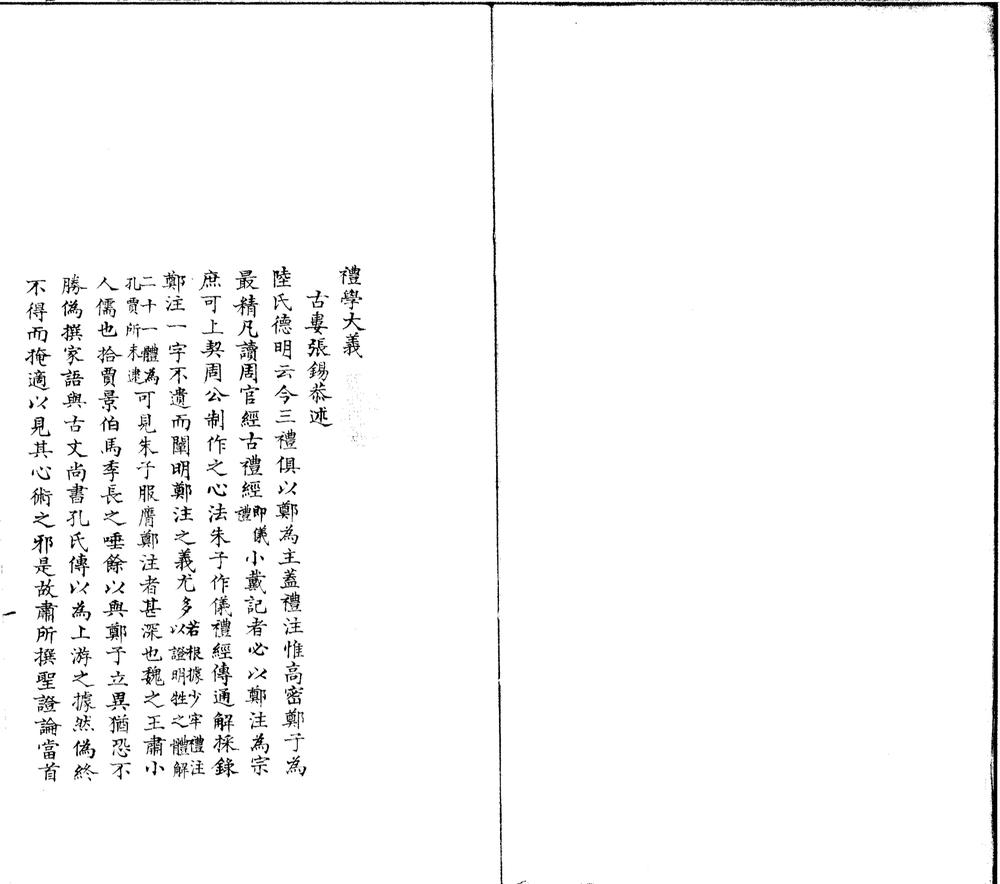 禮學大義
古婁張錫恭述
陸氏德明云今三禮俱以鄭為主蓋禮注惟高密鄭子為
最精凡讀周官經古禮經即儀禮小戴記者必以鄭注為宗
庶可上契周公制作之心法朱子作儀禮經傳通解採錄
鄭注一字不遺而闡明鄭注之義尤多若根據少牢禮注以證明牲之體解
二十一體為孔賈所未逮可見朱子服膺鄭注者甚深也魏之王肅小
人儒也拾賈景伯馬季長之唾餘以與鄭子立異猶恐不
勝偽撰家語與古文尚書孔氏傳以為上游之據然偽終
不得而掩適以見其心術之邪是故肅所撰聖證論當首
一